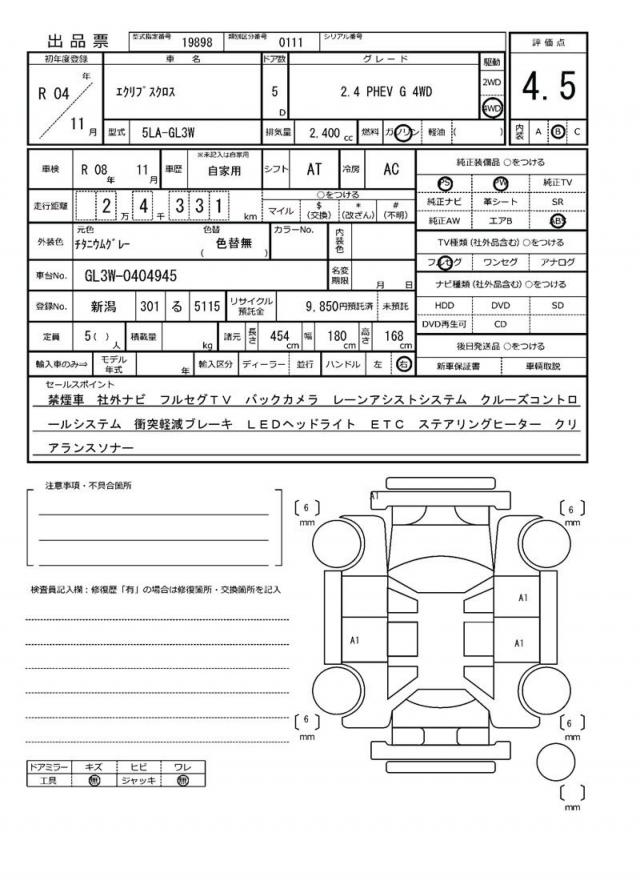 出品票 型式指定番号 19898 類別区分番号 0111 シリアル番号
初年度登録 車名 ドア数 グレード 駆動 評価点
R 04 年 11 月 ｴｸﾘﾌﾟｽｸﾛｽ 5 D 2.4 PHEV G 4WD 2WD 4WD 4.5
型式 5LA-GL3W 排気量 2,400 cc 燃料 ガソリン 軽油 ( ) 内装 A B C
車検 R 08 年 11 月 車歴 ※未記入は自家用 自家用 シフト AT 冷房 AC
走行距離 2 万 4 千 3 3 1 km ○をつける マイル $ (交換) * (改ざん) # (不明)
外装色 元色 ﾁﾀﾆｳﾑｸﾞﾚｰ 色替 ( 色替無 ) カラーNo. 内装色
車台No. GL3W-0404945 名変期限 月 日
登録No. 新潟 301 る 5115 リサイクル預託金 9,850円預託済 未預託
定員 5( ) 人 積載量 kg 諸元 長さ 454 cm 幅 180 cm 高さ 168 cm
輸入車のみ⇒ モデル年式 年 輸入区分 ディーラー 並行 ハンドル 左 右
純正装備品 ○をつける
PS PW 純正TV
純正ナビ 革シート SR
純正AW エアB ABS
TV種類(社外品含む) ○をつける
フルセグ ワンセグ アナログ
ナビ種類(社外品含む) ○をつける
HDD DVD SD
DVD再生可 CD
後日発送品 ○をつける
新車保証書 車輌取説
セールスポイント
禁煙車 社外ナビ フルセグTV バックカメラ レーンアシストシステム クルーズコントロ
ールシステム 衝突軽減ブレーキ LEDヘッドライト ETC ステアリングヒーター クリ
アランスソナー
注意事項・不具合箇所
検査員記入欄：修復歴「有」の場合は修復箇所・交換箇所を記入
A1
6 mm
6 mm
A1
A1 A1
6 mm
6 mm
mm
ドアミラー キズ ヒビ ワレ
工具 無 ジャッキ 無